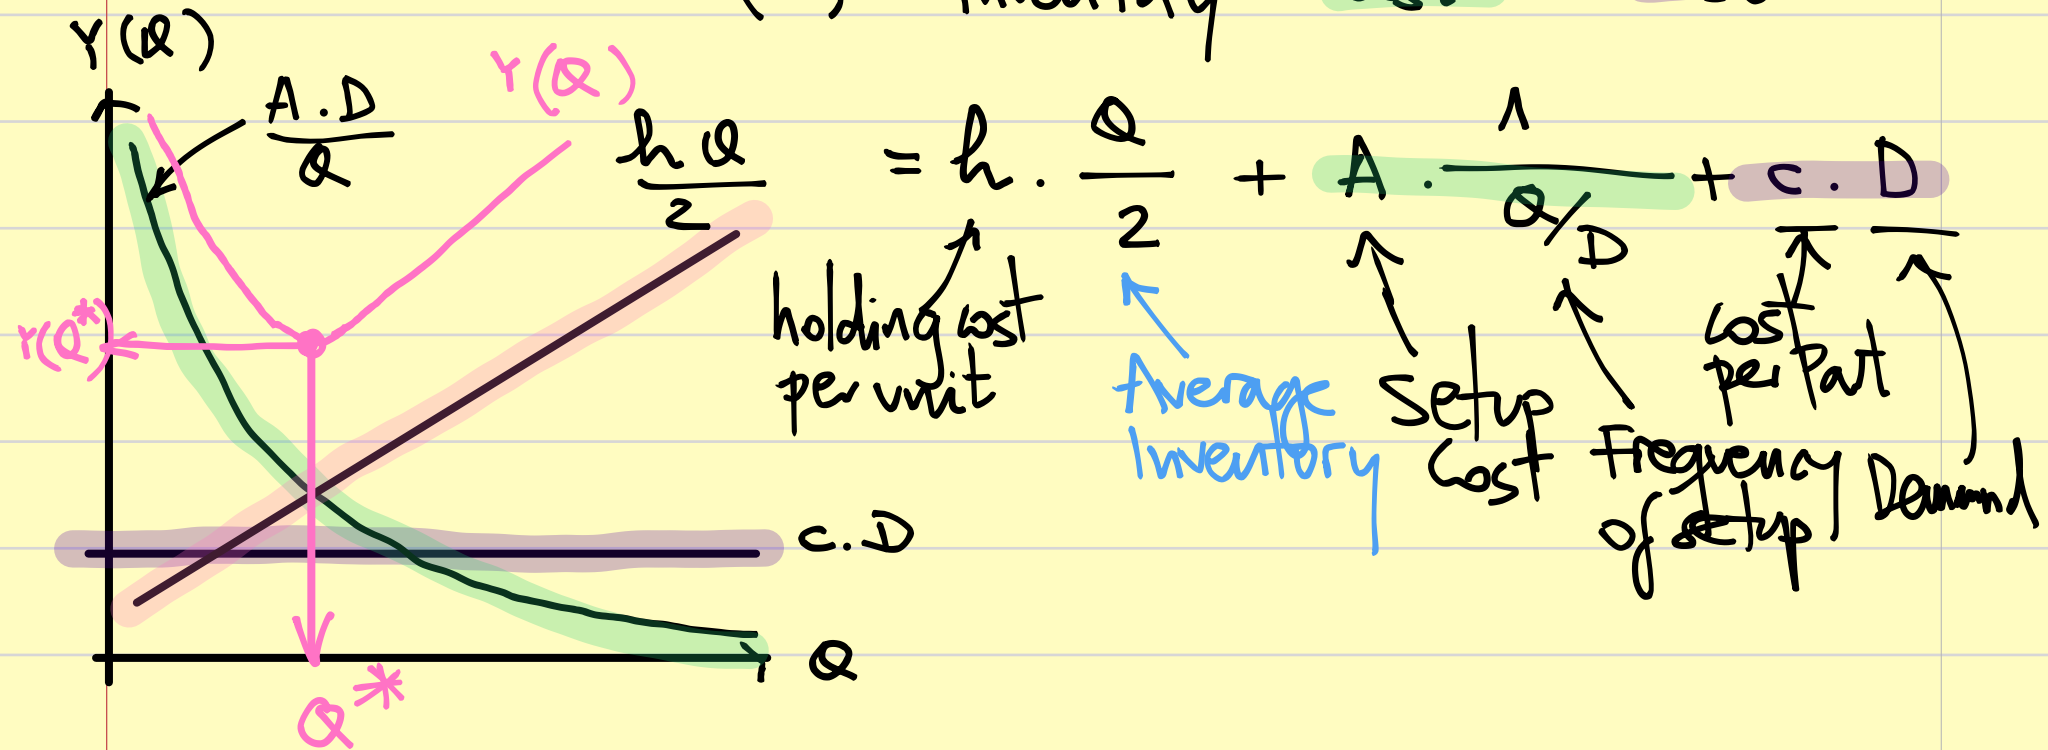 Inventory
Y(Q)
A.D
Q
Y(Q)
hQ
2
= h . Q/2 + A . 1/(Q/D) + c . D
holding cost
per unit
Average
Inventory
Setup
Cost
Frequency
of setup
Cost
per Part
Demand
Y(Q*)
c.D
Q
Q*